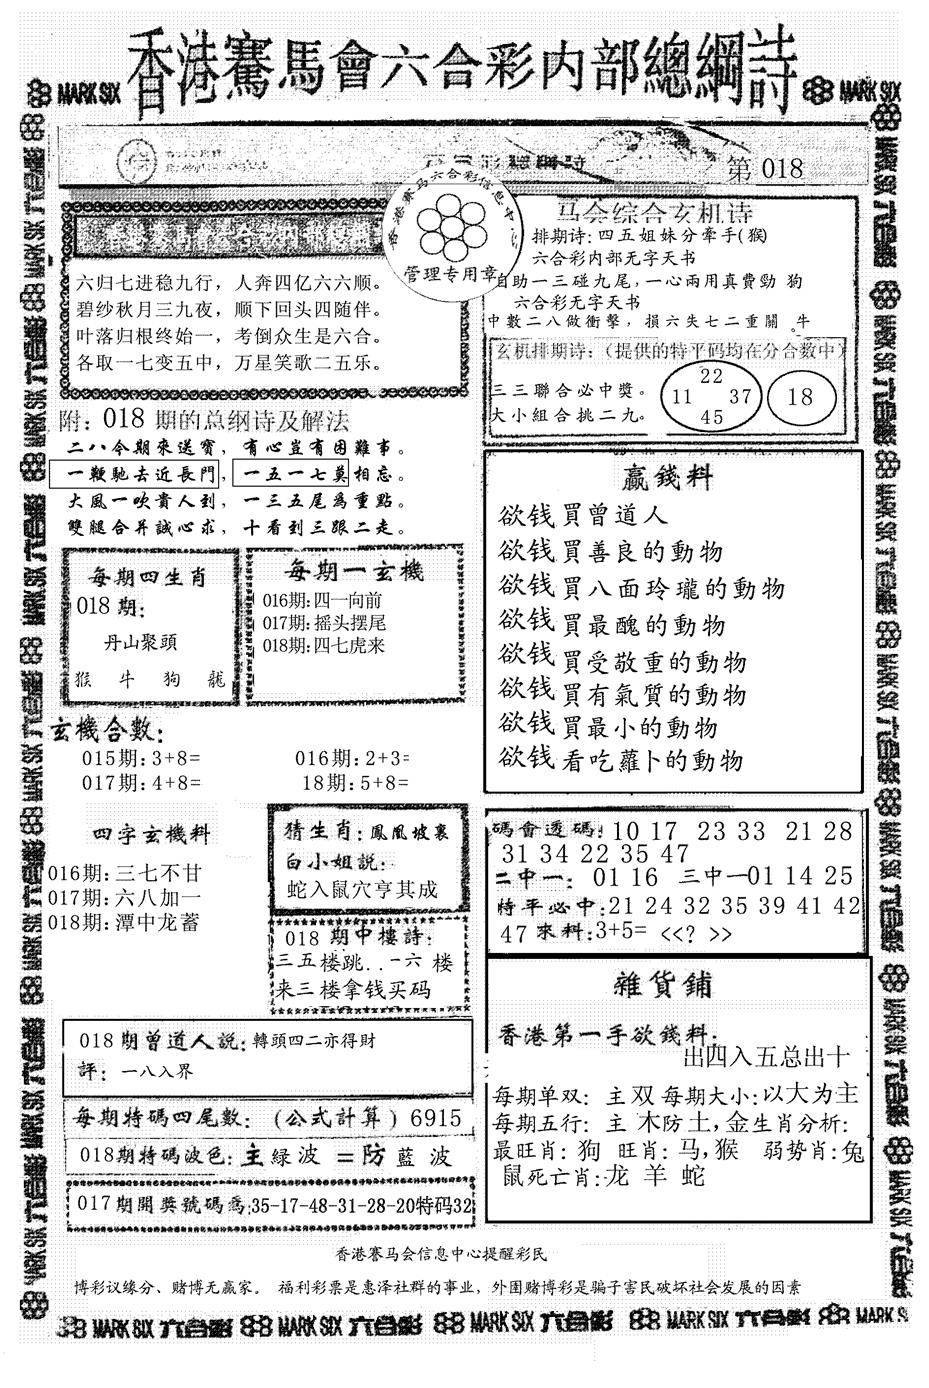 香港賽馬會六合彩内部總綱詩
MARK SIX
MARK SIX
第 018
香港赛马六合彩信息中
管理专用章
马会综合玄机诗
排期诗:四五姐妹分牽手(猴)
六合彩内部无字天书
自助一三碰九尾,一心兩用真費勁 狗
六合彩无字天书
中數二八做衝擊,損六失七二重關。牛
玄机排期诗:(提供的特平码均在分合数中)
三三聯合必中獎。
大小組合挑二九。
22
11 37
45
18
六归七进稳九行，人奔四亿六六顺。
碧纱秋月三九夜，顺下回头四随伴。
叶落归根终始一，考倒众生是六合。
各取一七变五中，万星笑歌二五乐。
附：018 期的总纲诗及解法
二八今期來送寶，有心豈有困難事。
一鞭馳去近長門，一五一七莫相忘。
大風一吹貴人到，一三五尾爲重點。
雙腿合并誠心求，十看到三跟二走。
每期四生肖
018 期：
丹山聚頭
猴 牛 狗 龍
每期一玄機
016期:四一向前
017期:摇头摆尾
018期:四七虎来
玄機合數：
015期:3+8= 016期:2+3=
017期:4+8= 18期:5+8=
四字玄機料
016期:三七不甘
017期:六八加一
018期:潭中龙蓄
猜生肖:鳳凰坡裏
白小姐説:
蛇入鼠穴亨其成
018 期中樓詩:
三五楼跳..一六 楼
来三楼拿钱买码
018 期曾道人説:轉頭四二亦得財
評: 一八入界
每期特碼四尾數: (公式計算) 6915
018期特碼波色:主 綠 波 =防 藍 波
017期開獎號碼爲:35-17-48-31-28-20特码32
贏錢料
欲钱買曾道人
欲钱買善良的動物
欲钱買八面玲瓏的動物
欲钱買最醜的動物
欲钱買受敬重的動物
欲钱買有氣質的動物
欲钱買最小的動物
欲钱看吃蘿卜的動物
碼會透碼:10 17 23 33 21 28
31 34 22 35 47
二中一: 01 16 三中一01 14 25
特平必中:21 24 32 35 39 41 42
47 來料:3+5= <<? >>
雜貨鋪
香港第一手欲錢料:
出四入五总出十
每期单双: 主 双 每期大小:以大为主
每期五行: 主 木防土,金生肖分析:
最旺肖: 狗 旺肖: 马,猴 弱势肖:兔
鼠死亡肖:龙 羊 蛇
香港赛马会信息中心提醒彩民
博彩议缘分、赌博无赢家。 福利彩票是惠泽社群的事业，外围赌博彩是骗子害民破坏社会发展的因素
MARK SIX 六合彩 MARK SIX 六合彩 MARK SIX 六合彩 MARK SIX 六合彩 MARK SIX